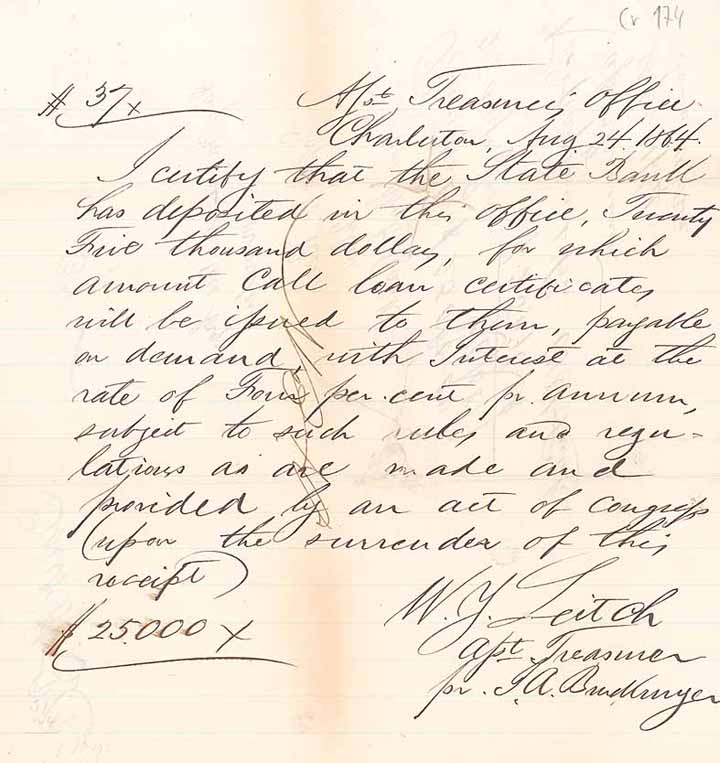 Cr 174
$ 37 x Asst Treasurers Office
Charleston, Aug 24. 1864.
I certify that the State Bank
has deposited in this office, Twenty
Five thousand dollars, for which
amount Call loan certificates
will be issued to them, payable
on demand, with Interest at the
rate of Four per. cent pr. annum,
subject to such rules and regu-
lations as are made and
provided by an act of Congress
(upon the surrender of this
receipt)
$ 25.000 x
W. Y. Leitch
Asst Treasurer
pr.